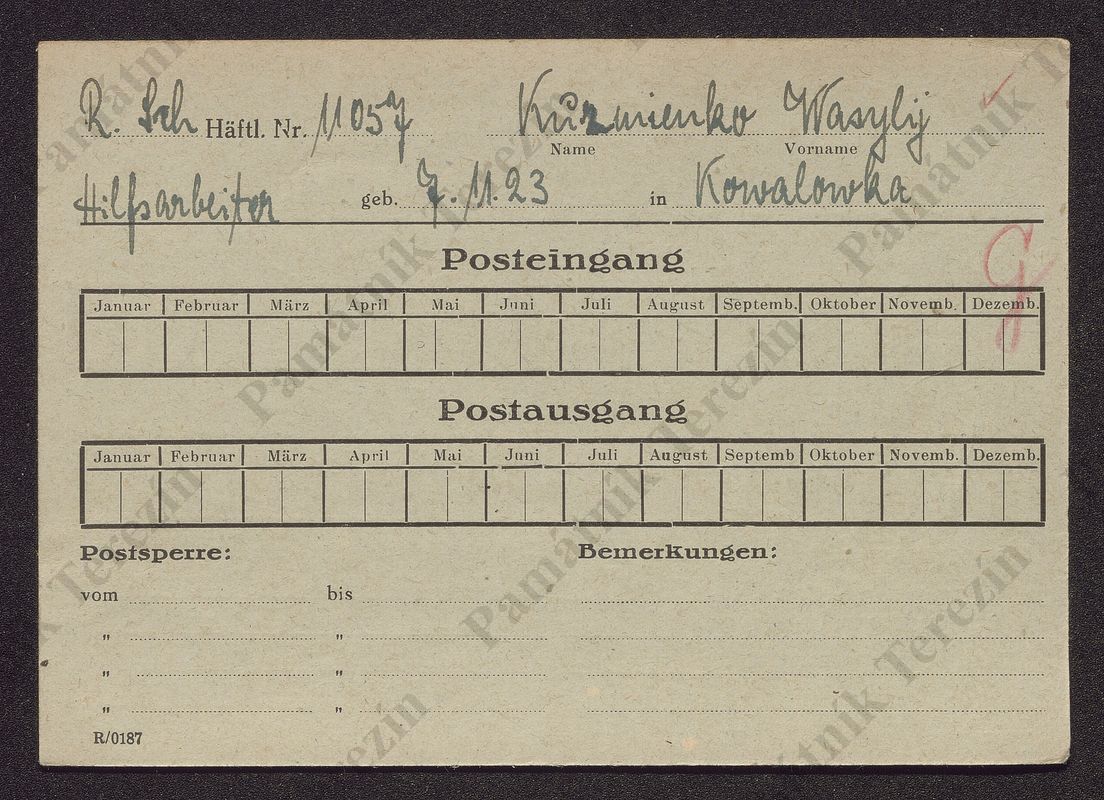 R. Sch Häftl. Nr. 11057 Kuzmienko Wasylij
Name Vorname
Hilfsarbeiter geb. 7.11.23 in Kowalowka
Posteingang
Januar Februar März April Mai Juni Juli August Septemb. Oktober Novemb. Dezemb.
Postausgang
Januar Februar März April Mai Juni Juli August Septemb Oktober Novemb. Dezemb.
Postsperre: Bemerkungen:
vom bis
" "
" "
" "
R/0187
Památník Terezín
Památník Terezín
Památník Terezín
Památník Terezín